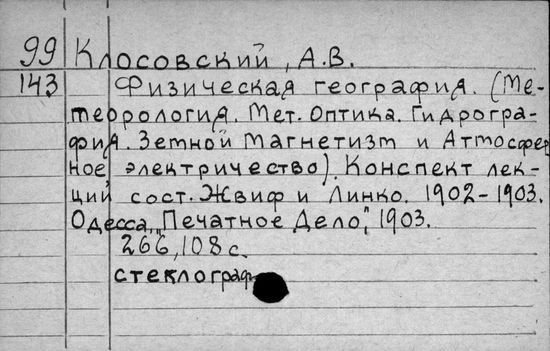 99 Клосовский, А.В.
143 Физическая география. (Ме-
теорология. Мет. Оптика. Гидрогра-
фия. Земной магнетизм и Атмосфер
ное электричество). Конспект лек-
ций сост. Жвиф и Линко. 1902-1903.
Одесса, "Печатное Дело", 1903.
266, 108 с.
стеклограф